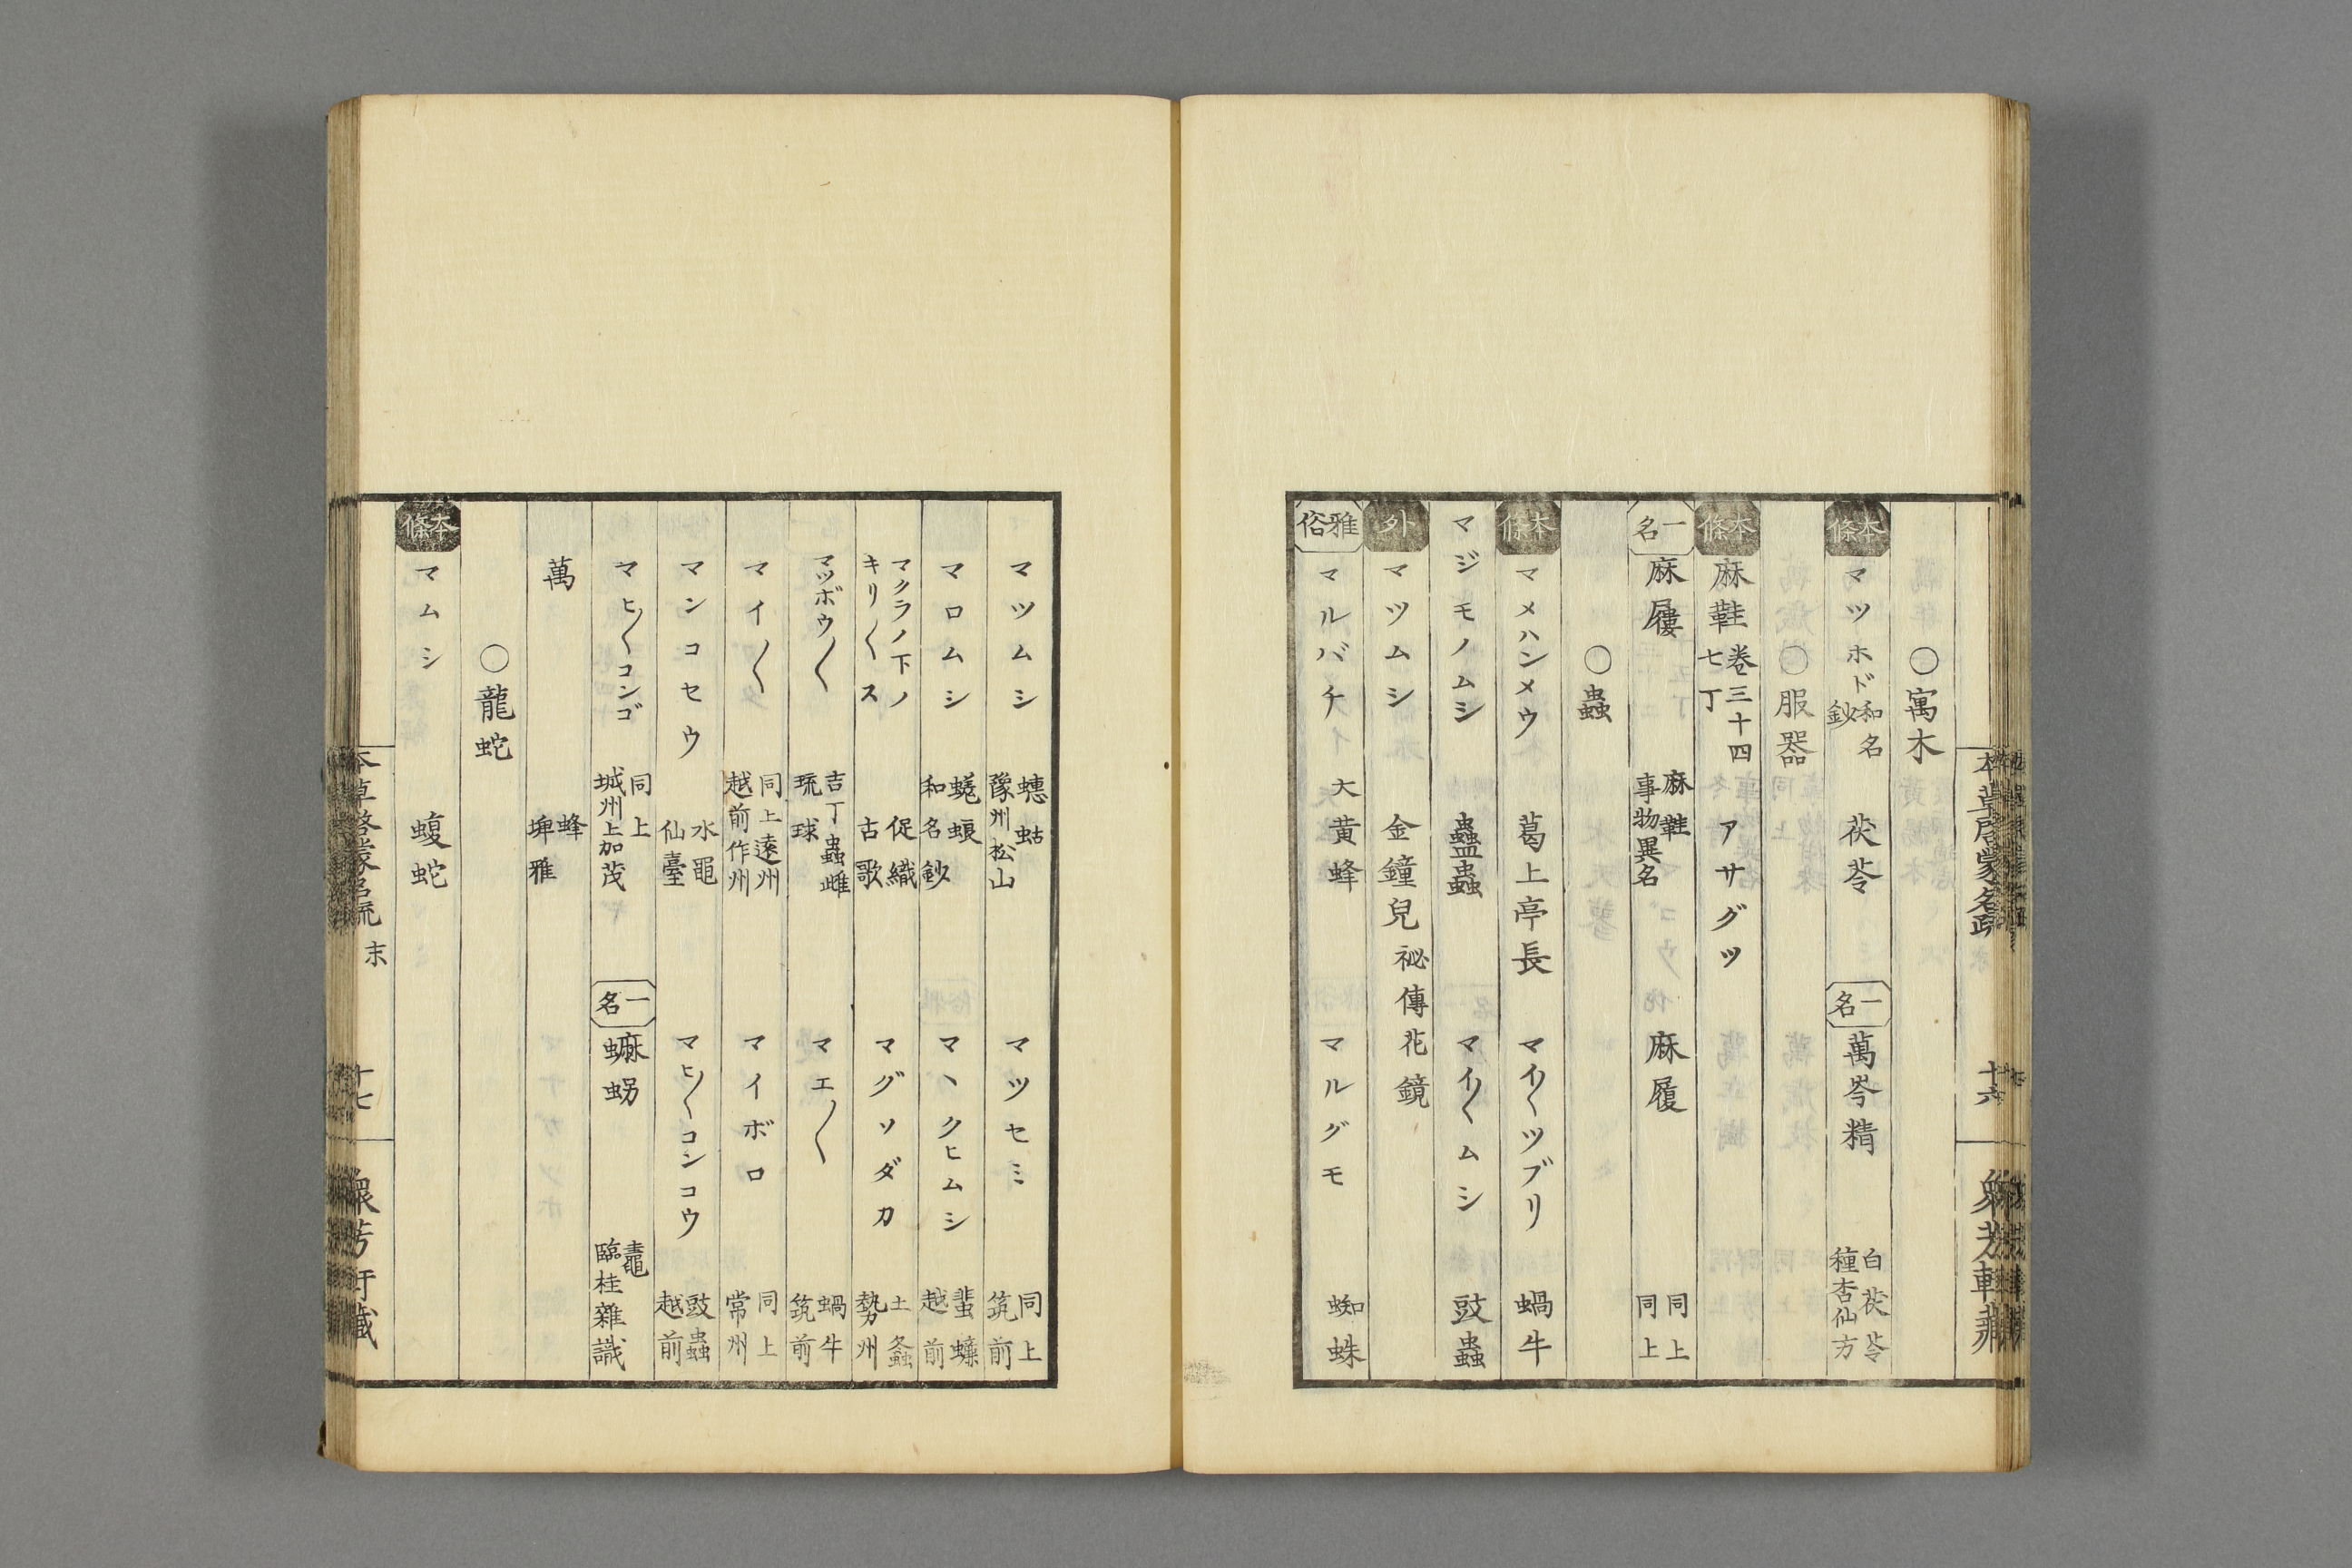 本草啓蒙名疏
十六
衆芳軒藏
〇寓木
本條 マツホド 和名鈔 茯苓 一名 萬岑精 白茯苓 種杏仙方
〇服器
本條 麻鞋 巻三十四 七丁 アサグツ
一名 麻屨 麻鞋 事物異名 麻履 同上 同上
〇蟲
本條 マメハンメウ 葛上亭長 マイ〱ツブリ 蝸牛
マジモノムシ 蠱蟲 マイ〱ムシ 豉蟲
外 マツムシ 金鐘兒 祕傳花鏡
雅俗 マルバチ 大黄蜂 マルグモ 蜘蛛
マツムシ 蟪蛄 豫州松山 マツセミ 同上 筑前
マロムシ 蜣蜋 和名鈔 マヽクヒムシ 蜚蠊 越前
マクラノ下ノキリ〱ス 促織 古歌 マグソダカ 土螽 勢州
マツボウ〱 吉丁蟲雌 琉球 マエ〱 蝸牛 筑前
マイ〱 同上 遠州 越前 作州 マイボロ 同上 常州
マンコセウ 水黽 仙臺 マヒ〱コンコウ 豉蟲 越前
マヒ〱コンゴ 同上 城州上加茂 一名 䗫蝪 鼃黽 臨桂雜識
萬 蜂 埤雅
〇龍蛇
本條 マムシ 蝮蛇
本草啓蒙名疏 末
十七
衆芳軒藏